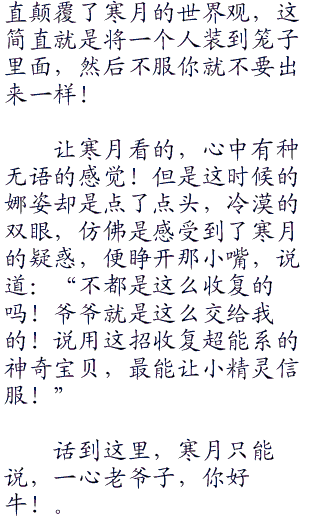 直颠覆了寒月的世界观，这
简直就是将一个人装到笼子
里面，然后不服你就不要出
来一样！
让寒月看的，心中有种
无语的感觉！但是这时候的
娜姿却是点了点头，冷漠的
双眼，仿佛是感受到了寒月
的疑惑，便睁开那小嘴，说
道：“不都是这么收复的
吗！爷爷就是这么交给我
的！说用这招收复超能系的
神奇宝贝，最能让小精灵信
服！”
话到这里，寒月只能
说，一心老爷子，你好
牛！。